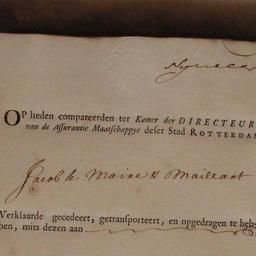 OP heden compareerden ter Kamer der DIRECTEUR
van de Assurantie Maatschappye deser Stad ROTTERDA
Jacob le Maire & Maillart
Verklaarde gecedeert, getransporteert, en opgedragen te heb
ben, mits dezen aan